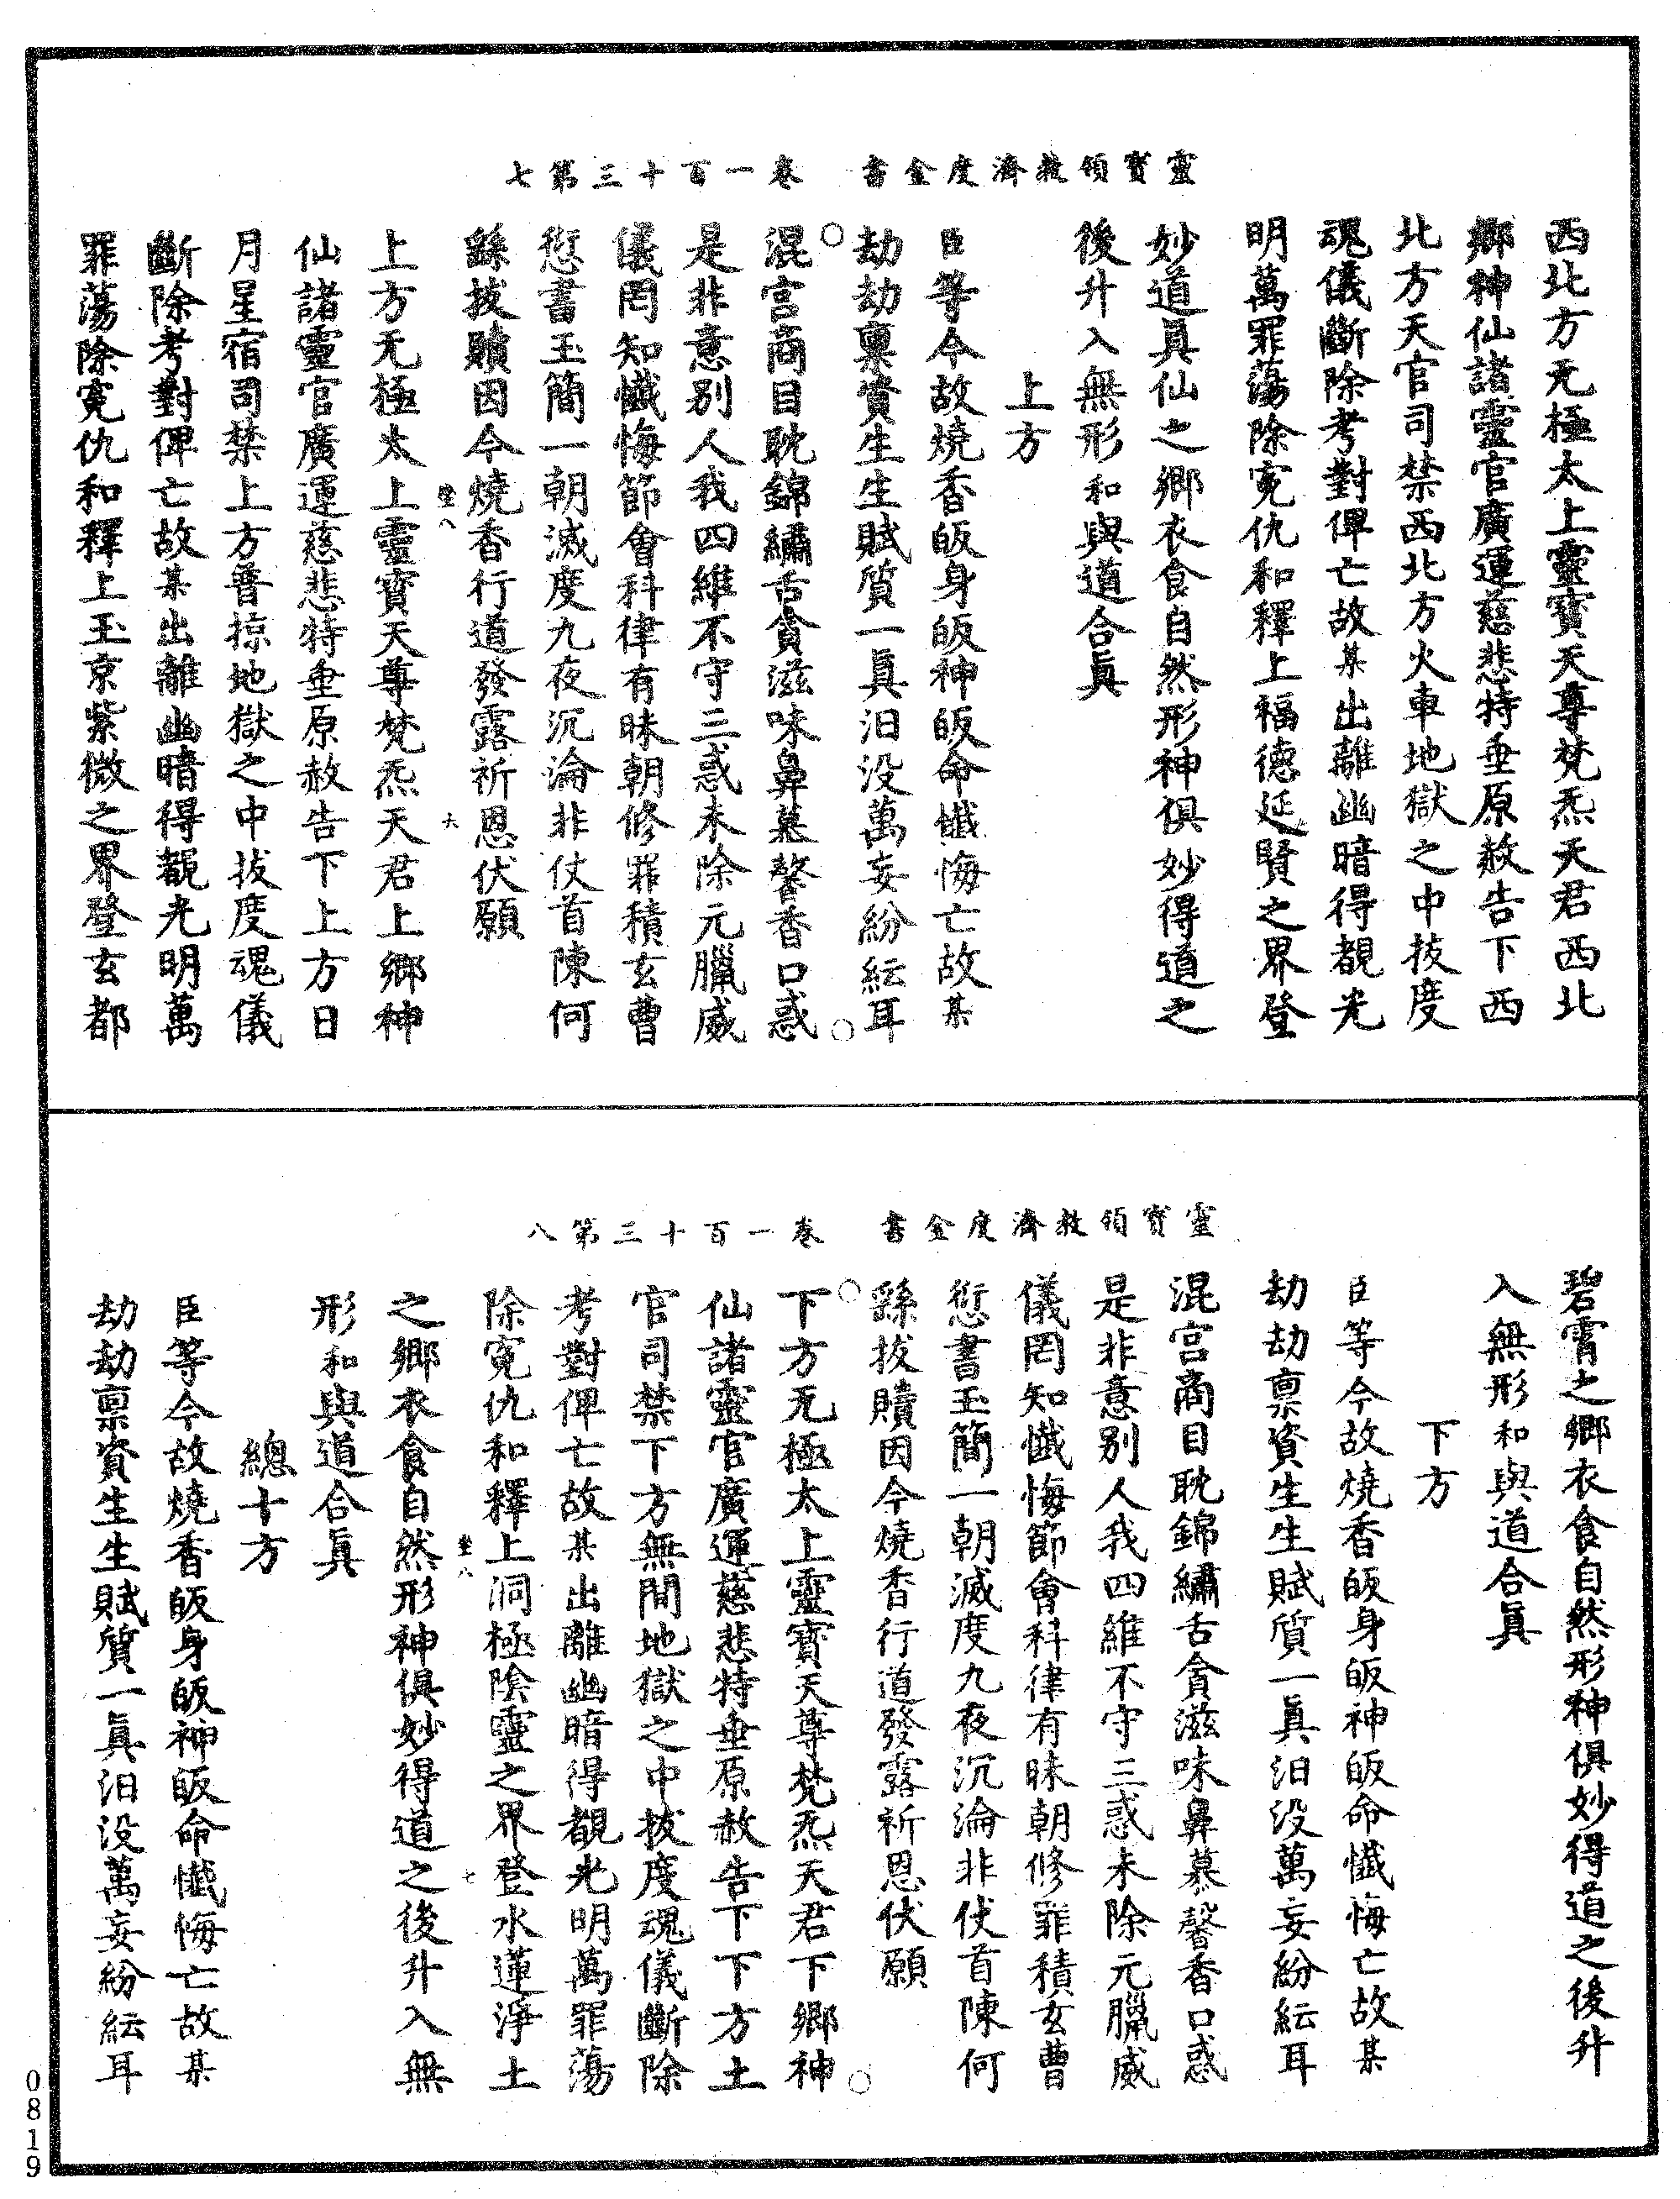 靈寶領教濟度金書　卷一百十三第七
西北方无極太上靈寶天尊梵炁天君西北
鄉神仙諸靈官廣運慈悲特垂原赦告下西
北方天官司禁西北方火車地獄之中拔度
魂儀斷除考對俾亡故某出離幽暗得覩光
明萬罪蕩除寃仇和釋上福德延賢之界登
妙道眞仙之鄉衣食自然形神俱妙得道之
後升入無形和與道合眞
上方
臣等今故燒香皈身皈神皈命懺悔亡故某
劫劫禀資生生賦質一眞汨没萬妄紛紜耳
混宫商目耽錦繡舌貪滋味鼻慕馨香口惑
是非意别人我四維不守三惑未除元臘威
儀罔知懺悔節會科律有昧朝修罪積玄曹
愆書玉簡一朝滅度九夜沉淪非仗首陳何
繇拔贖因今燒香行道發露祈恩伏願
坐八　六
上方无極太上靈寶天尊梵炁天君上鄉神
仙諸靈官廣運慈悲特垂原赦告下上方日
月星宿司禁上方普掠地獄之中拔度魂儀
斷除考對俾亡故某出離幽暗得覩光明萬
罪蕩除寃仇和釋上玉京紫微之界登玄都
靈寶領教濟度金書　卷一百十三第八
碧霄之鄉衣食自然形神俱妙得道之後升
入無形和與道合眞
下方
臣等今故燒香皈身皈神皈命懺悔亡故某
劫劫禀資生生賦質一眞汨没萬妄紛紜耳
混宫商目耽錦繡舌貪滋味鼻慕馨香口惑
是非意别人我四維不守三惑未除元臘威
儀罔知懺悔節會科律有昧朝修罪積玄曹
愆書玉簡一朝滅度九夜沉淪非仗首陳何
繇拔贖因今燒香行道發露祈恩伏願
下方无極太上靈寶天尊梵炁天君下鄉神
仙諸靈官廣運慈悲特垂原赦告下下方土
官司禁下方無間地獄之中拔度魂儀斷除
考對俾亡故某出離幽暗得覩光明萬罪蕩
除寃仇和釋上洞極陰靈之界登水蓮淨土
坐八　七
之鄉衣食自然形神俱妙得道之後升入無
形和與道合眞
總十方
臣等今故燒香皈身皈神皈命懺悔亡故某
劫劫禀資生生賦質一眞汨没萬妄紛紜耳
0819